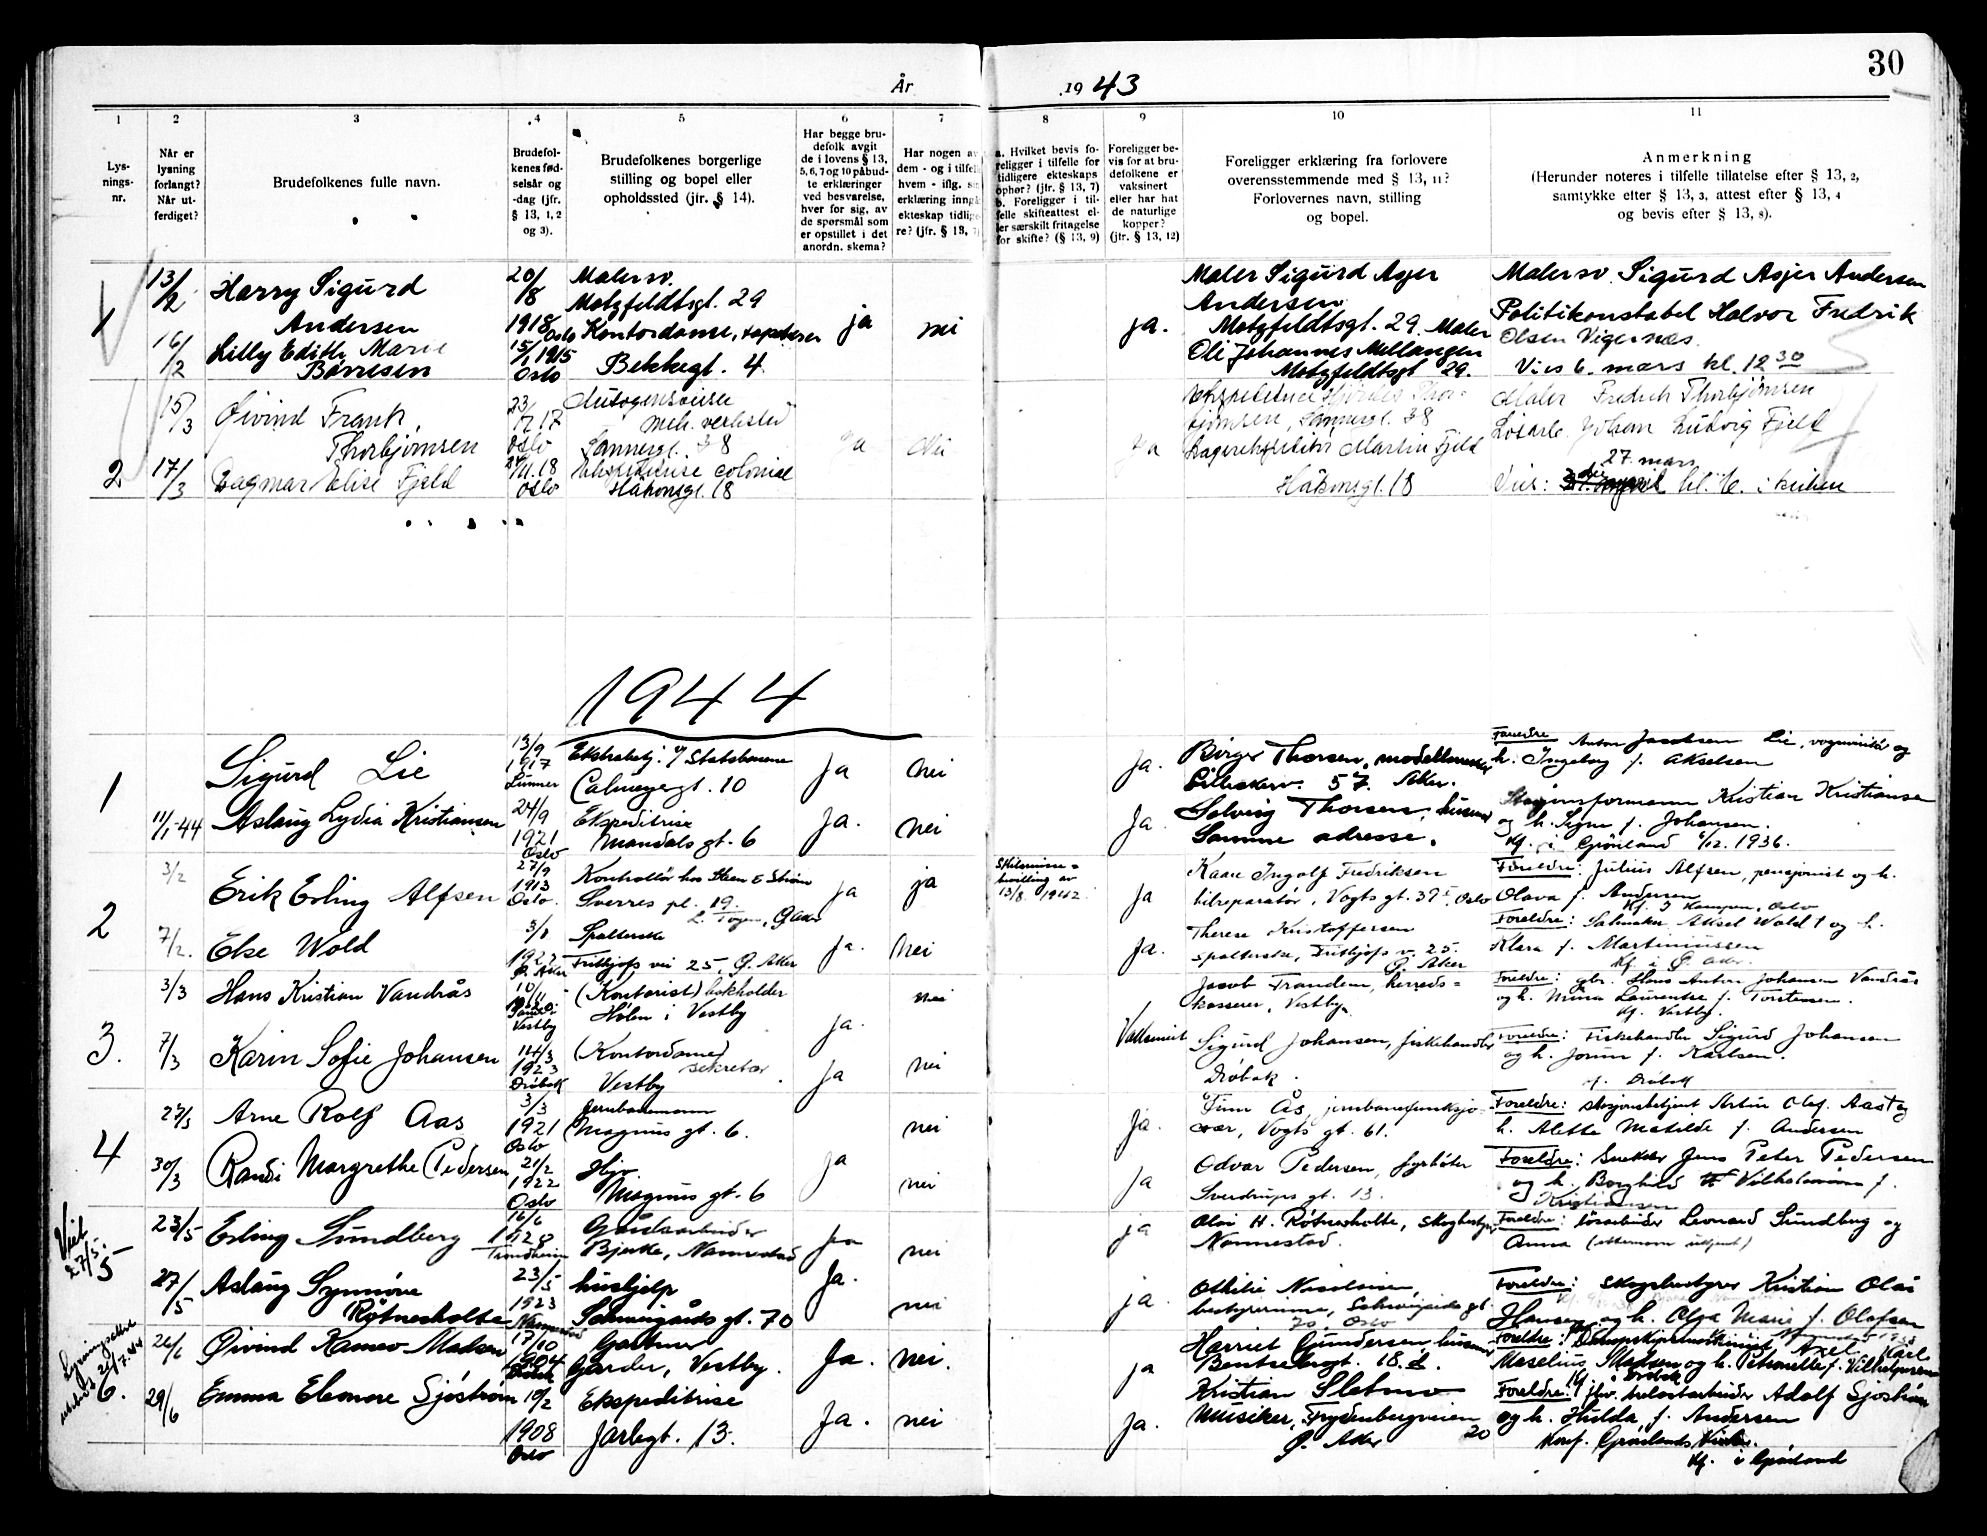 30
År 1943
1
Lysnings-nr.
2
Når er lysning forlangt? Når utferdiget?
3
Brudefolkenes fulle navn.
4
Brudefolkenes fødselsår og -dag (jfr. § 13, 1, 2 og 3).
5
Brudefolkenes borgerlige stilling og bopel eller opholdssted (jfr. § 14).
6
Har begge brudefolk avgit de i lovens § 13, 5, 6, 7 og 10 påbudte erklæringer ved besvarelse, hver for sig, av de spørsmål som er opstillet i det anordn. skema?
7
Har nogen av dem - og i tilfelle hvem - iflg. sin erklæring inngå ekteskap tidligere? (jfr. § 13, 7)
8
a. Hvilket bevis foreligger i tilfelle for tidligere ekteskaps ophør? (jfr. § 13, 7)
b. Foreligger i tilfelle skifteattest eller særskilt fritagelse for skifte? (§ 13, 9)
9
Foreligger bevis for at brudefolkene er vaksinert eller har hat de naturlige kopper? (jfr. § 13, 12)
10
Foreligger erklæring fra forlovere overensstemmende med § 13, 11? Forlovernes navn, stilling og bopel.
11
Anmerkning
(Herunder noteres i tilfelle tillatelse efter § 13, 2, samtykke efter § 13, 3, attest efter § 13, 4 og bevis efter § 13, 8).
1
13/2
16/2
Harry Sigurd
Andersen
Lilly Edith Marie
Børresen
20/8
1918 Oslo
15/1 1915
Oslo
Malersv.
Motzfeldtsgt. 29
Kontordame,
Bekkegt. 4
ja
nei
ja.
Maler Sigurd Asjer
Andersen
Motzfeldtsgt. 29. Maler
Ole Johannes Mellangen
Motzfeldtsgt 29.
Malersv. Sigurd Asjer Andersen
Politikonstabel Halvor Fredrik
Olsen Vigernæs.
Vies 6. mars kl. 12 30
2
15/3
17/3
Øivind Frank
Thorbjørnsen
Dagmar Elise Fjeld
23/7 17
Oslo
11.18
Oslo
mek. verksted
Sannergt. 38
colonial
Håkonsgt. 18
ja
Nei
ja
Sannergt. 38
Martin Fjeld
Håkonsgt. 18
Maler Fredrik Thorbjørnsen
Løsarb. Johan Ludvig Fjeld
27. mars
Vies: kl. i kirken
1944
1
11/1-44
Sigurd Lie
Aslaug Lydia Kristiansen
13/9
1917
Lunner
24/9
1921
Oslo
Ekstrabetj. v/ Statsbanene
Calmeyergt. 10
Ekspeditrise
Mandals gt. 6
Ja
nei
Ja.
nei
Ja.
Ja
Birger Thorsen,
57. Aker.
Solveig Thorsen, husmor
Samme adresse.
Foreldre Anton Jacobsen Lie, vognvisitør og
h. Ingeborg f. Akselsen
Stasjonsformann Kristian Kristiansen
og h. Signe f. Johansen.
Kf. i Grønland 6/12. 1936.
2
3/2
7/2.
Erik Erling Alfsen
Else Wold
27/9
1913
Oslo.
3/1
1922
Ø. Aker
Kontrollør hos Steen & Strøm
Sverres pl. 19.
Spolerske
Fridtjofs vei 25, Ø. Aker
ja
ja
ja.
Nei
Skilsmisse=
bevilling av
13/8 1942
Ja
Ja.
Kaare Ingolf Fredriksen
bilreparatør, Vogts gt. 39 I, Oslo
Therese Kristoffersen
spolerske, Fridtjofs v. 25.
Ø. Aker
Foreldre: Julius Alfsen, pensjonist og h.
Olava f. Andersen
Kf. i Kampen, Oslo
Foreldre: Salmaker Aksel Wold † og h.
Klara f. Martiniussen
Kf. i Ø. Aker.
3.
3/3
7/3
Hans Kristian Vandrås
Karin Sofie Johansen
10/11
Vestby
14/3
1923
Drøbak
(Kontorist) bokholder
Hølen i Vestby
(Kontordame)
sekretær
Vestby
ja.
nei
ja
nei
Vaksinert
Jacob Trandem, herreds=
kasserer, Vestby.
Sigurd Johansen, fiskehandler
Drøbak.
Foreldre: gbr. Hans Anton Johansen Vandrås
og h. Mina Laurentze f. Torstensen.
Kf. Vestby.
Foreldre: Fiskehandler Sigurd Johansen
og h. Jorun f. Karlsen.
f. Drøbak
4
27/3
30/3
Arne Rolf Aas
Randi Margrethe Pedersen
3/3
1921
Oslo
21/2
1922
Oslo
Jernbanemann
Magnus gt. 6.
Hjv.
Magnus gt. 6
ja
nei
nei
Ja.
Ja
Finn Ås, jernbanefunksjo-
nær, Vogts gt. 61.
Odvar Pedersen, fyrbøter
Sverdrups gt. 13.
Foreldre: stasjonsbetjent Artur Olaf. Aas † og
h. Alette Matilde f. Andersen
Foreldre: Snekker Jens Peter Pedersen
og h. Borghild Vilhelmine f.
Kristiansen
Viet
27/5.
5
23/5
27/5
Erling Sundberg
Aslaug Synnøve
Røtnesholte
16/6
Trondheim
23/5
1923
Nannestad
Gårdsarbeider
Bjerke, Nannestad
hushjelp
Schweigårds gt. 70
ja
nei
Ja.
nei
ja
ja.
Olai H. Røtnesholte, skogbestyrer
Nannestad.
Othilie Nicolaisen
bestyrerinne, Schweigaards gt.
70, Oslo
Foreldre: løsarbeider Leonard Sundberg og
Anna (etternavn ukjent)
Foreldre: Skogsbestyrer Kristian Olai
Hansen og h. Olga Marie f. Olafsen
Lysningsattest
utstedt 21/7.44
6.
26/6
29/6
Øivind Ramao Madsen
Emma Eleonore Sjøstrøm
17/10
1904
Drøbak
10/2
1908
Oslo
Gartner
Garder, Vestby.
Ekspeditrise
Jarlegt. 13.
Ja.
nei.
Ja.
nei
ja
Ja.
Harriet Gundersen husmor
Bentsebrogt. 18.
Kristian Sletmo
Musiker, Frydenbergveien
20
Ø. Aker
Foreldre: Axel Karl
Maselius Madsen og h. Petronelle f. Vilhelmsen
Kf. i Drøbak
Foreldre: Adolf Sjøstrøm
og h. Hulda, f. Andersen
Konf. Grønlands
Kf. i Grønland